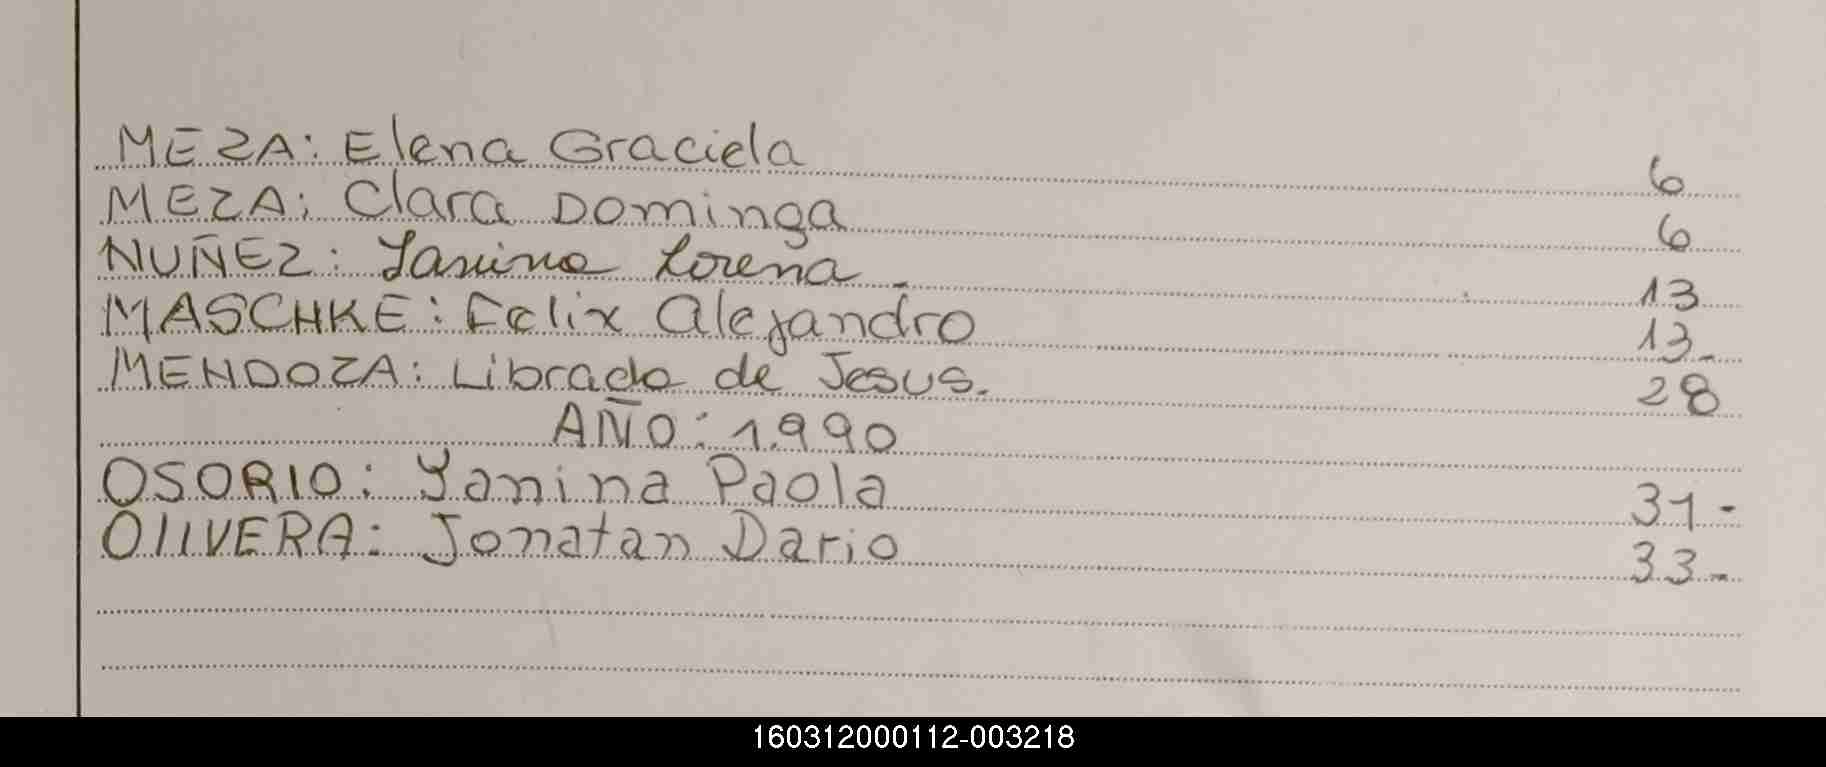 MEZA: Elena Graciela 6
MEZA: Clara Dominga 6
NUÑEZ: Yanina Lorena 13
MASCHKE: Felix Alejandro 13-
MENDOZA: Librado de Jesus. 28
AÑO: 1.990
OSORIO: Yanina Paola 31-
OLIVERA: Jonatan Dario 33-
160312000112-003218